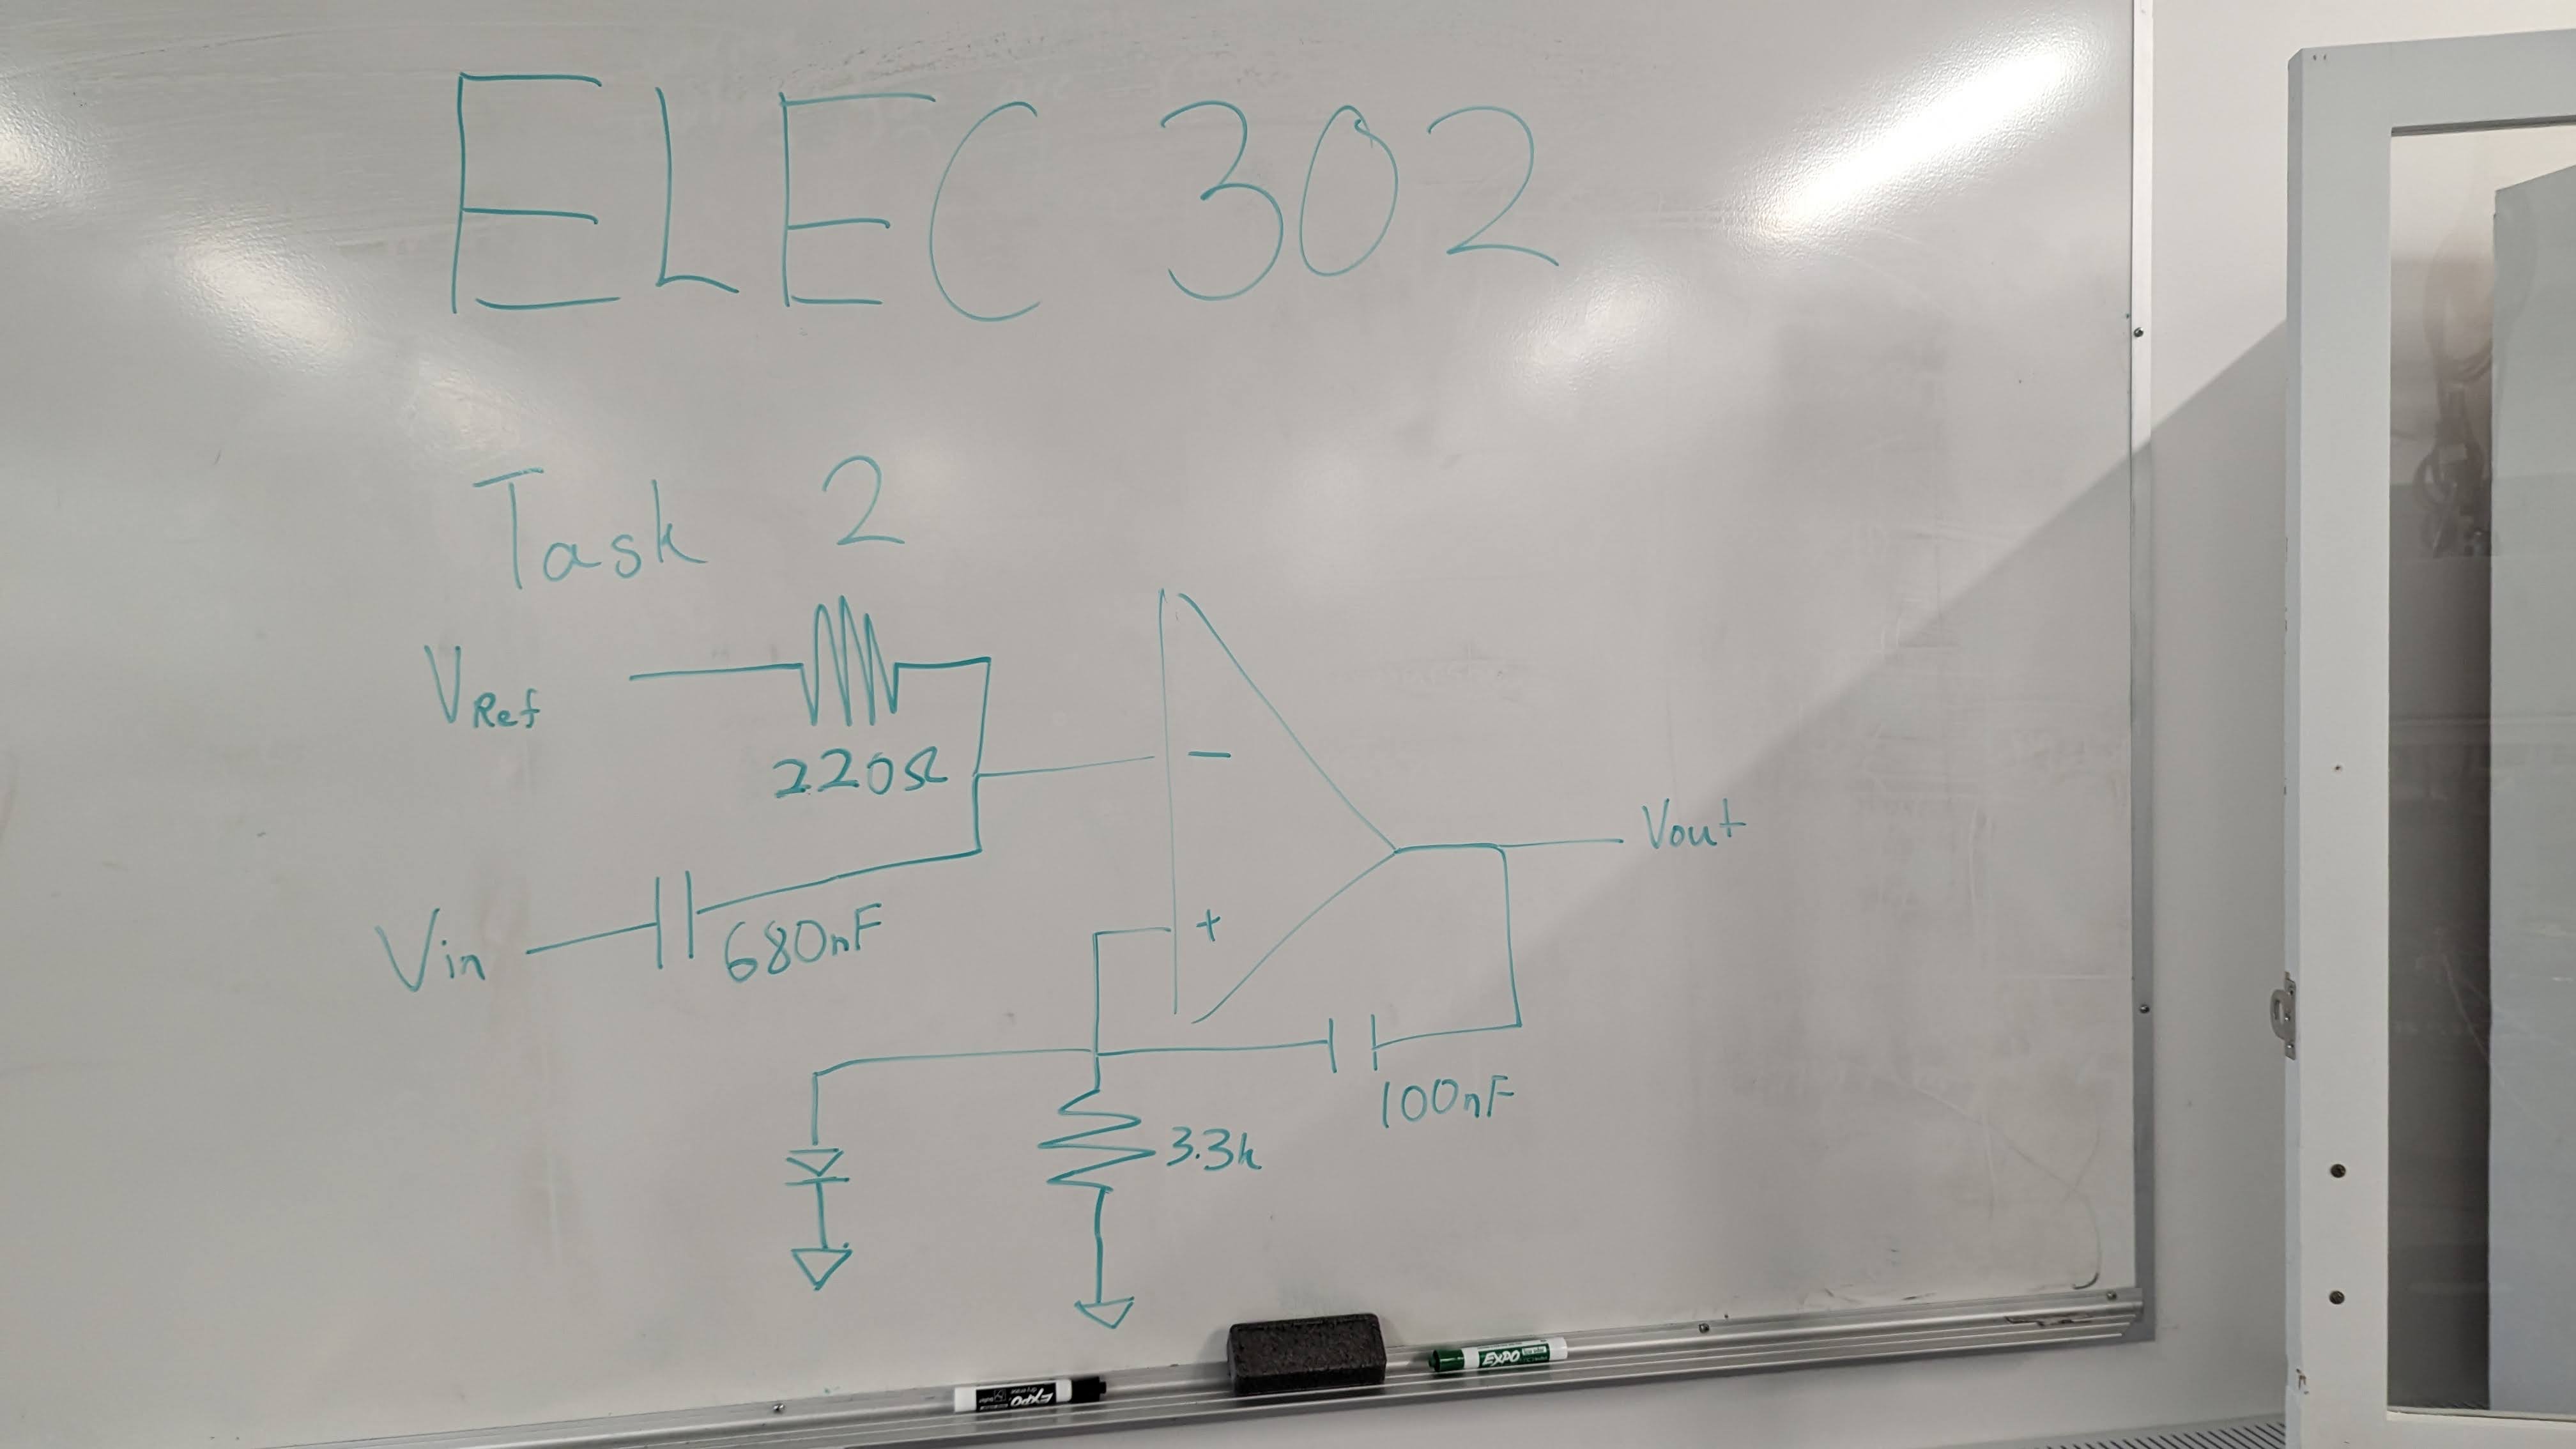 ELEC 302
Task 2
VRef
220Ω
-
Vout
Vin
680nF
+
100nF
3.3k
EXPO
EXPO